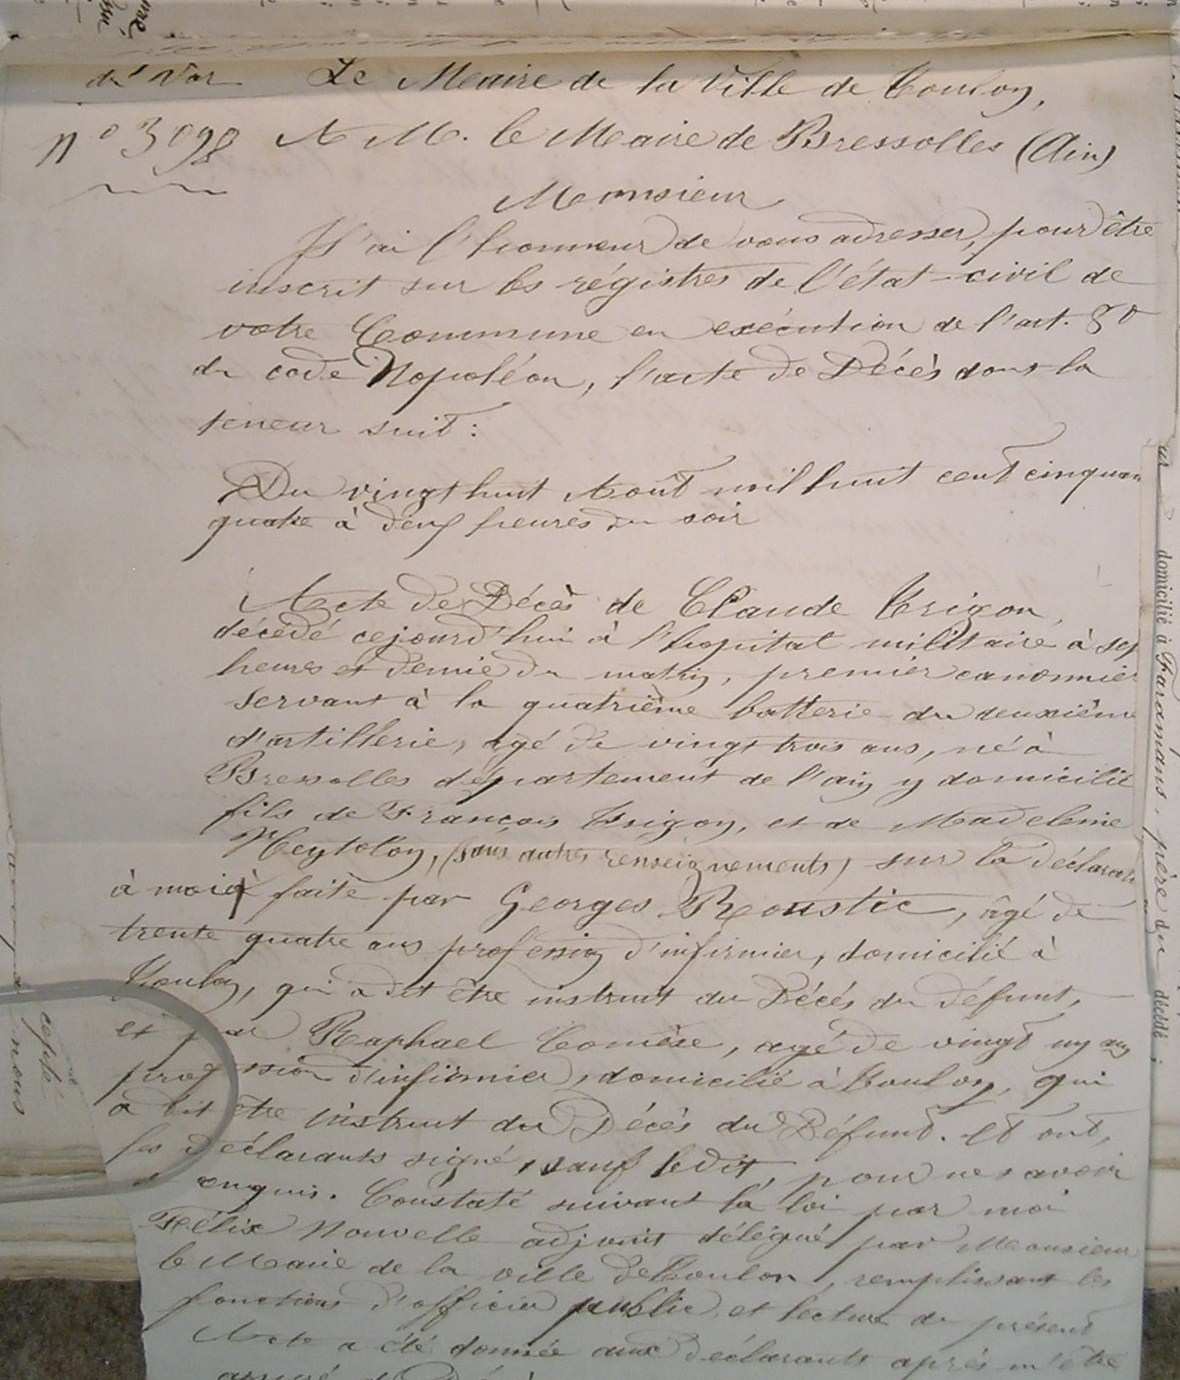 du Var Le Maire de la Ville de Toulon,
n° 3098 A M. le Maire de Bressolles (Ain)
Monsieur
J'ai l'honneur de vous adresser, pour être
inscrit sur les régistres de l'état-civil de
votre Commune en exécution de l'art. 80
du code Napoléon, l'acte de Décès dont la
teneur suit:
Du vingt huit Août mil huit cent cinquan
quatre à deux heures du soir
Acte de Décès de Claude Trigon,
décédé cejourd'hui à l'hopital militaire à sep
heures et demie du matin, premier canonnier
servant à la quatrième batterie du deuxième
d'artillerie, agé de vingt trois ans, né à
Bressolles département de l'ain y domicilié
fils de François Trigon, et de Madeleine
(sans autres renseignements) sur la déclarati
à moi faite par Georges Roustic, âgé de
trente quatre ans profession d'infirmier, domicilié à
Toulon, qui a dit être instruit du Décès du défunt,
et par Raphael Comère, agé de vingt un ans
profession d'infirmier, domicilié à Toulon, qui
a dit être instruit du Décès du Défunt. Et ont,
les Déclarants signé, sauf le dit, pour ne savoir
enquis. Constaté suivant la loi par moi
Félix Nouvelle adjoint délégué par Monsieur
le Maire de la ville de Toulon, remplissant les
fonctions d'officier public, et lecture du présent
Acte a été donnée aux Déclarants après m'être
domicilié à Faramans, père du décédé;
cepte
nous